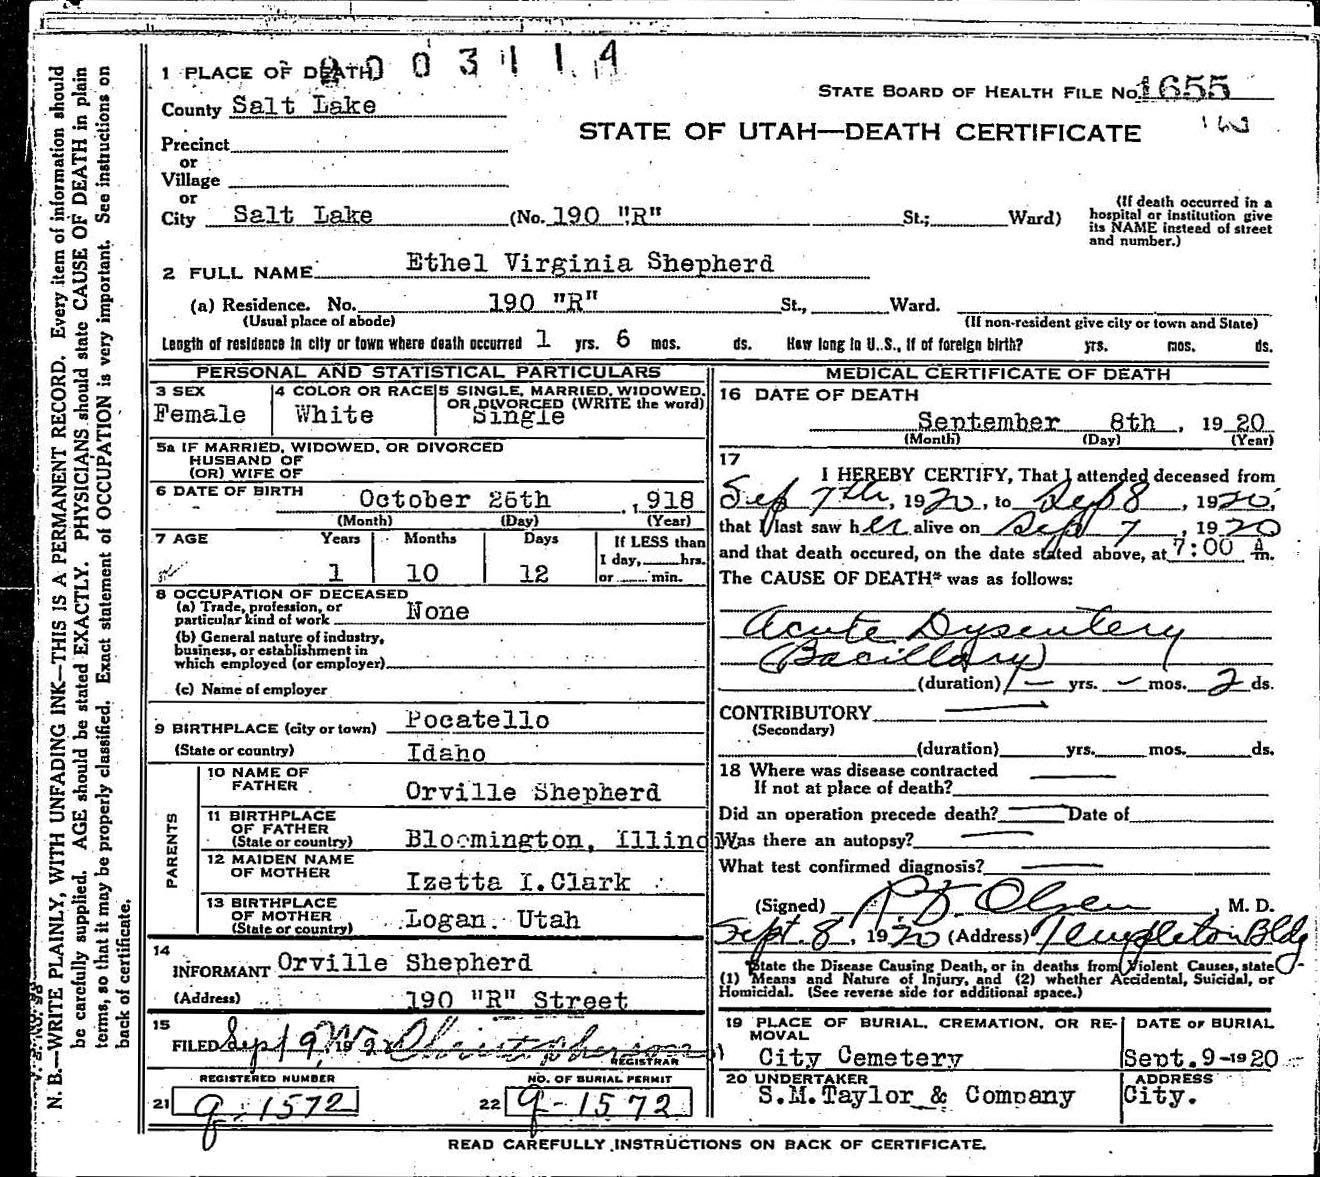 0003114
1 PLACE OF DEATH
STATE BOARD OF HEALTH FILE No. 1655
County Salt Lake
STATE OF UTAH—DEATH CERTIFICATE
Precinct
or
Village
or
City Salt Lake (No. 190 "R" St.; Ward)
(If death occurred in a hospital or institution give its NAME instead of street and number.)
2 FULL NAME Ethel Virginia Shepherd
(a) Residence. No. 190 "R" St., Ward.
(Usual place of abode) (If non-resident give city or town and State)
Length of residence in city or town where death occurred 1 yrs. 6 mos. ds. How long in U.S., if of foreign birth? yrs. mos. ds.
PERSONAL AND STATISTICAL PARTICULARS
3 SEX Female
4 COLOR OR RACE White
5 SINGLE, MARRIED, WIDOWED, OR DIVORCED (WRITE the word) Single
5a IF MARRIED, WIDOWED, OR DIVORCED
HUSBAND OF
(OR) WIFE OF
6 DATE OF BIRTH October 26th, 1918
(Month) (Day) (Year)
7 AGE Years Months Days If LESS than
1 day, hrs.
1 10 12 or min.
8 OCCUPATION OF DECEASED
(a) Trade, profession, or
particular kind of work None
(b) General nature of industry,
business, or establishment in
which employed (or employer)
(c) Name of employer
9 BIRTHPLACE (city or town) Pocatello
(State or country) Idaho
PARENTS
10 NAME OF
FATHER Orville Shepherd
11 BIRTHPLACE
OF FATHER
(State or country) Bloomington, Illino
12 MAIDEN NAME
OF MOTHER Izetta I. Clark
13 BIRTHPLACE
OF MOTHER
(State or country) Logan. Utah
14
INFORMANT Orville Shepherd
(Address) 190 "R" Street
15
FILED Sept 9, 1920
REGISTRAR
REGISTERED NUMBER NO. OF BURIAL PERMIT
21 9-1572 22 9-1572
MEDICAL CERTIFICATE OF DEATH
16 DATE OF DEATH
September 8th, 1920
(Month) (Day) (Year)
17
I HEREBY CERTIFY, That I attended deceased from
Sep 7th, 1920, to Sep 8, 1920,
that I last saw her alive on Sep 7, 1920
and that death occured, on the date stated above, at 7:00 A m.
The CAUSE OF DEATH* was as follows:
Acute Dysentery
(Bacillary)
(duration) — yrs. — mos. 2 ds.
CONTRIBUTORY
(Secondary)
(duration) yrs. mos. ds.
18 Where was disease contracted
If not at place of death?
Did an operation precede death? Date of
Was there an autopsy?
What test confirmed diagnosis?
(Signed) Olsen, M. D.
Sept. 8, 1920 (Address) Templeton Bldg
*State the Disease Causing Death, or in deaths from Violent Causes, state
(1) Means and Nature of Injury, and (2) whether Accidental, Suicidal, or
Homicidal. (See reverse side for additional space.)
19 PLACE OF BURIAL, CREMATION, OR RE-
MOVAL
City Cemetery
DATE OF BURIAL
Sept. 9-1920
20 UNDERTAKER
S.M.Taylor & Company
ADDRESS
City.
READ CAREFULLY INSTRUCTIONS ON BACK OF CERTIFICATE.
N. B.—WRITE PLAINLY, WITH UNFADING INK—THIS IS A PERMANENT RECORD. Every item of information should
be carefully supplied. AGE should be stated EXACTLY. PHYSICIANS should state CAUSE OF DEATH in plain
terms, so that it may be properly classified. Exact statement of OCCUPATION is very important. See instructions on
back of certificate.